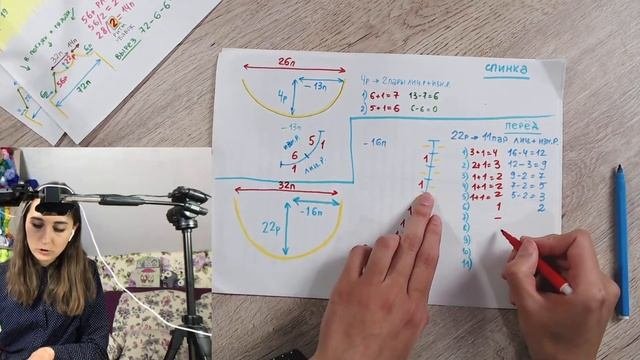 56р
56/2 =
28/2 = 14п
32п 14п
56р
72п
ВЫРЕЗ 72-6-6
26п
4р
-13п
СПИНКА
4р → 2 пары лиц.р+изн.р.
1) 6+1=7 13-7=6
2) 5+1=6 6-6=0
-13п
5 1
6
1 лиц.р.
-16п
1
1
ПЕРЁД
22р → 11 пар лиц+изн.р.
1) 3+1=4 16-4=12
2) 2+1=3 12-3=9
3) 1+1=2 9-2=7
4) 1+1=2 7-2=5
5) 1+1=2 5-2=3
6) 1 2
7) –
8)
9)
10)
11)
32п
-16п
22р